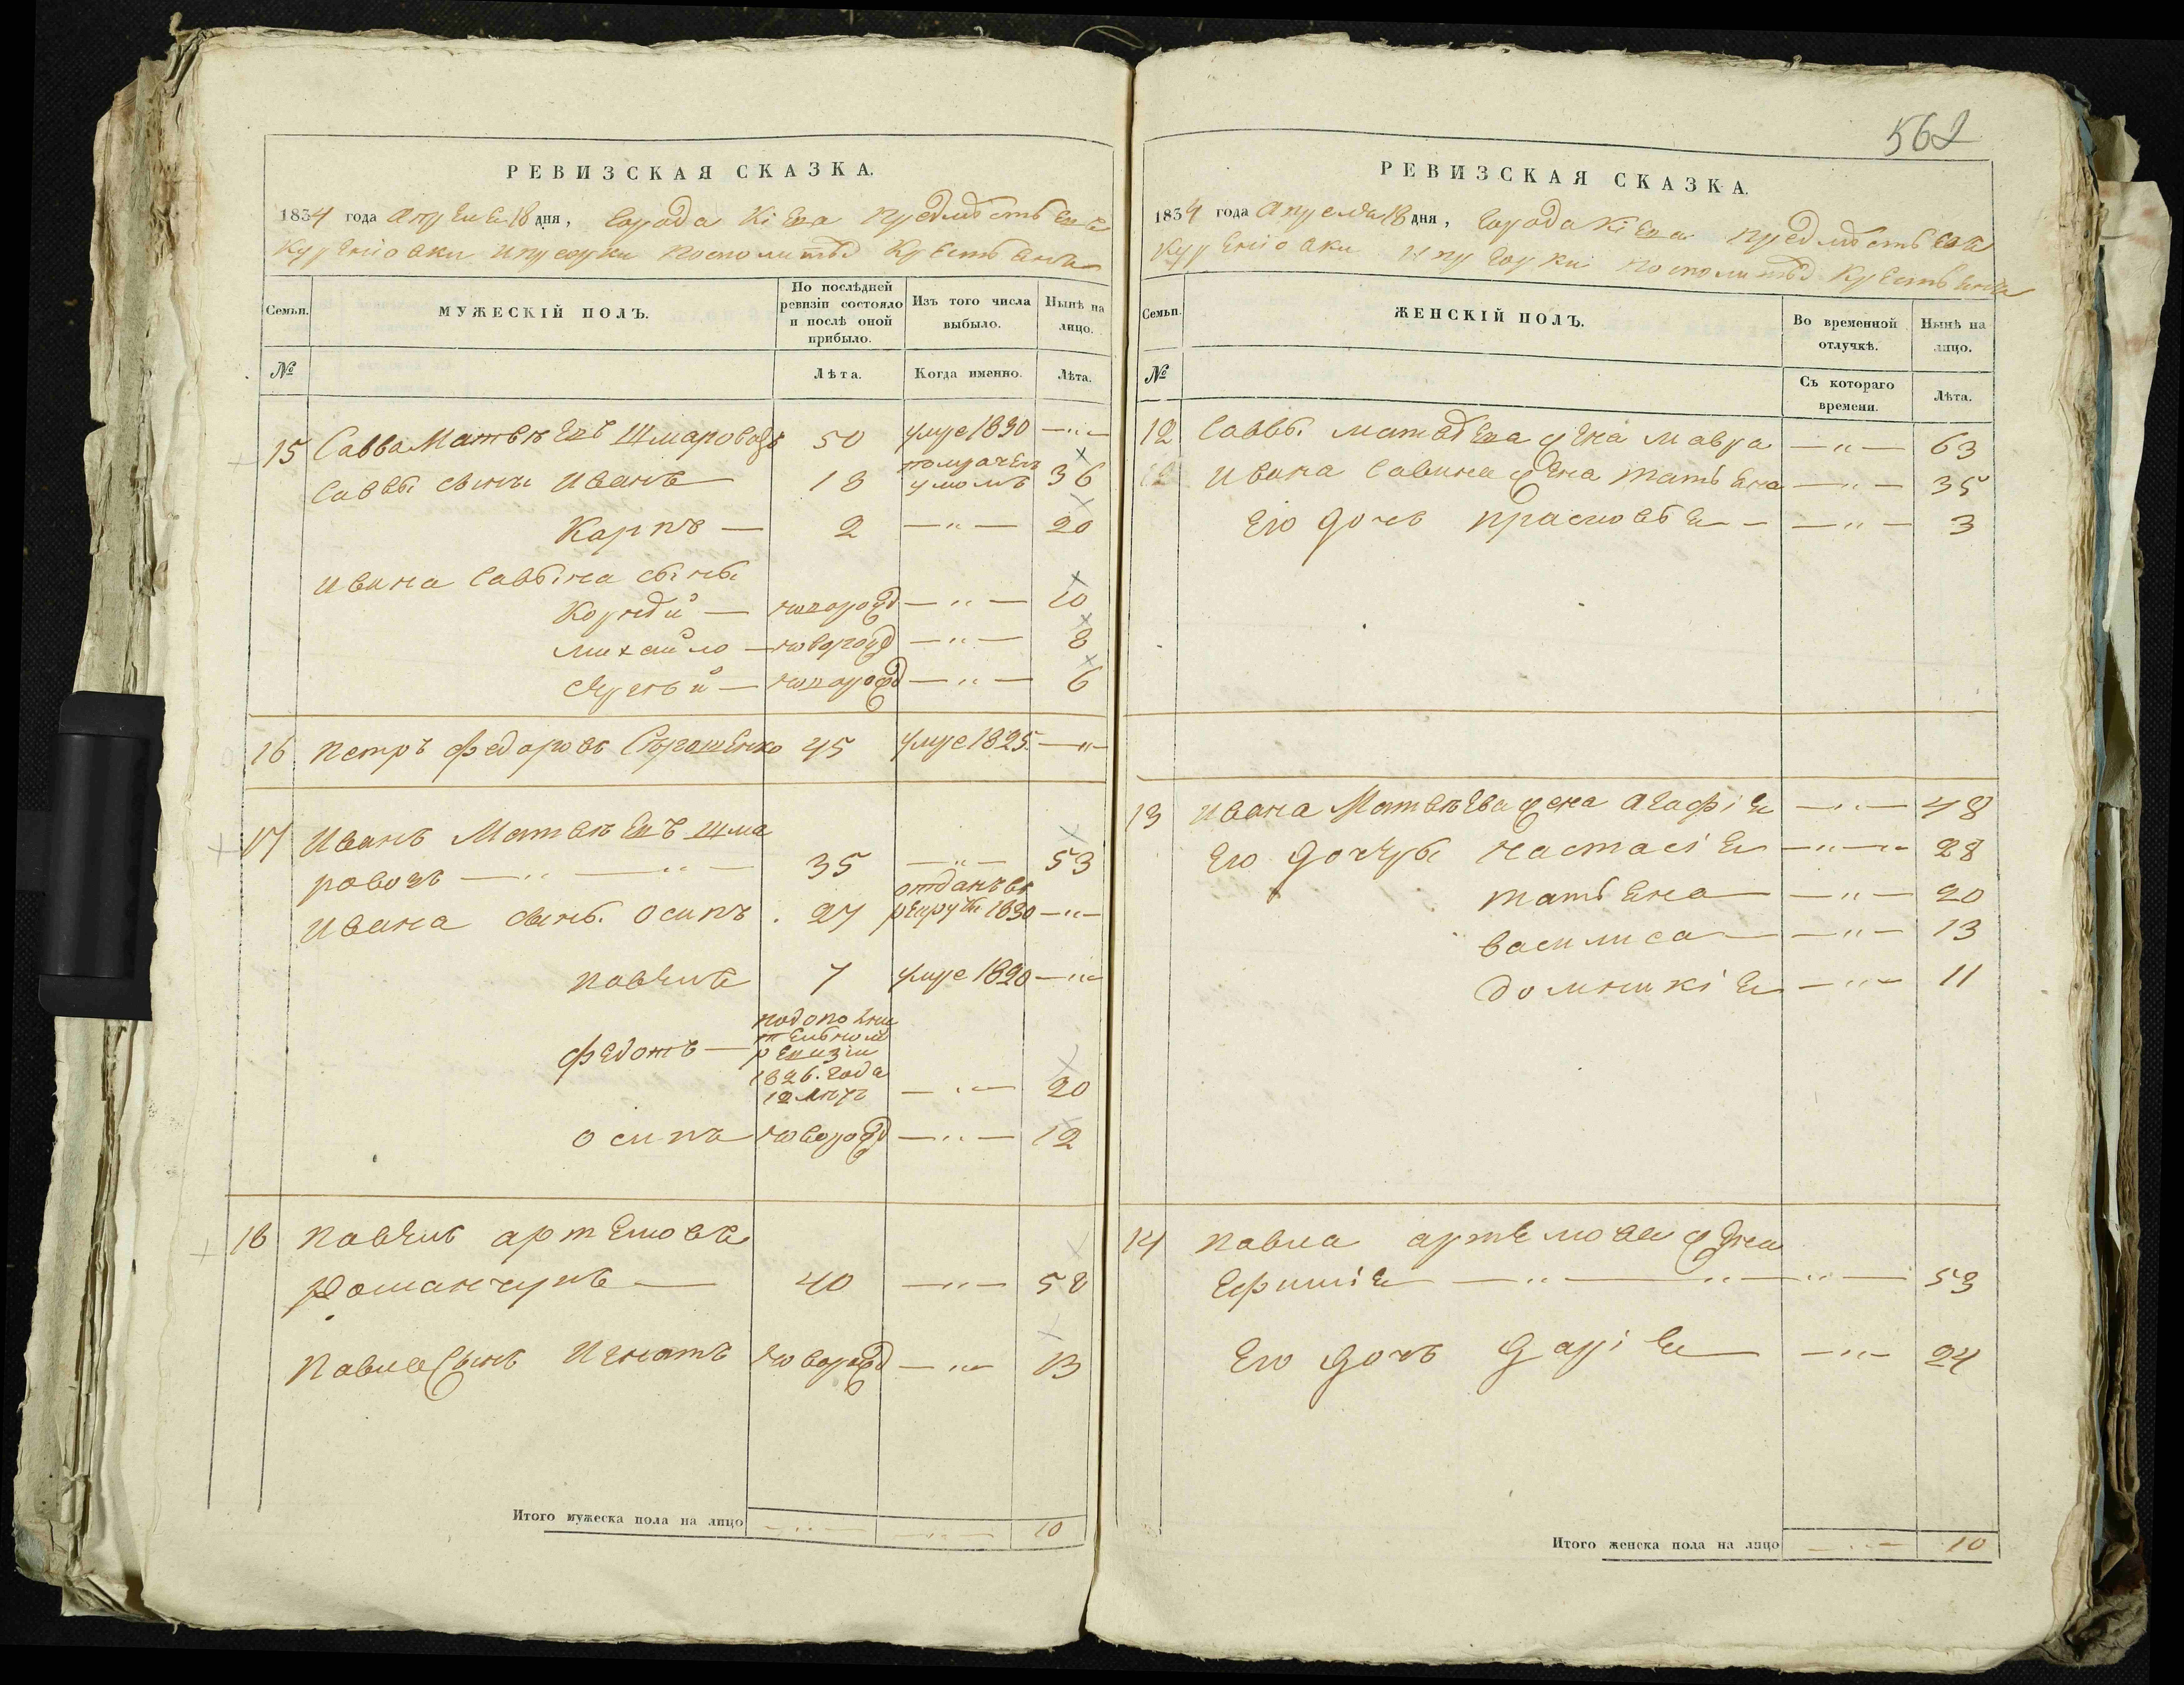 РЕВИЗСКАЯ СКАЗКА.
1834 года Апреля 18 дня, города Кіева предмѣстьевъ
Куреніовки и Пріорки посполитыхъ крестьянъ
Семьи.
МУЖЕСКІЙ ПОЛЪ.
По послѣдней ревизіи состояло и послѣ оной прибыло.
Изъ того числа выбыло.
Нынѣ на лицо.
№
Лѣта.
Когда именно.
Лѣта.
15 Савва Матвѣевъ Шмаровозъ 50 умре 1830 —"—
Саввы сынъ Иванъ 18 помраченъ умомъ 36
Карпъ — 2 —"— 20
Ивана Саввина сыны
Корнѣй — новорожд —"— 10
Михайло — новорожд —"— 8
Сергѣй — новорожд —"— 6
16 Петръ Федоровъ 45 умре 1825 —"—
17 Иванъ Матвѣевъ Шма
ровозъ —"— —"— 35 —"— 53
Ивана сынъ Осипъ 27 отданъ въ рекруты 1830 —"—
Павелъ 7 умре 1820 —"—
Федотъ — по дополнительной ревизіи 1826. года 12 лѣтъ —"— 20
Осипъ новорожд —"— 12
18 Павелъ Артемовъ
Романчукъ — 40 —"— 58
Павла сынъ Игнатъ новорожд —"— 13
Итого мужеска пола на лицо —"— —"— 10
562
РЕВИЗСКАЯ СКАЗКА.
1834 года Апреля 18 дня, города Кіева предмѣстьевъ
Куреніовки и Пріорки посполитыхъ крестьянъ
Семьи.
ЖЕНСКІЙ ПОЛЪ.
Во временной отлучкѣ.
Нынѣ на лицо.
№
Съ котораго времени.
Лѣта.
12 Саввы Матвѣева жена Мавра —"— 63
Ивана Савина жена Татьяна —"— 35
Его дочь Прасковья — —"— 3
13 Ивана Матвѣева жена Агафія —"— 48
Его дочери Настасія —"— 28
Татьяна —"— 20
Василиса —"— 13
Домникія —"— 11
14 Павла Артемова жена
Ефимія —"— —"— —"— 53
Его дочь Дарія —"— 24
Итого женска пола на лицо —"— 10